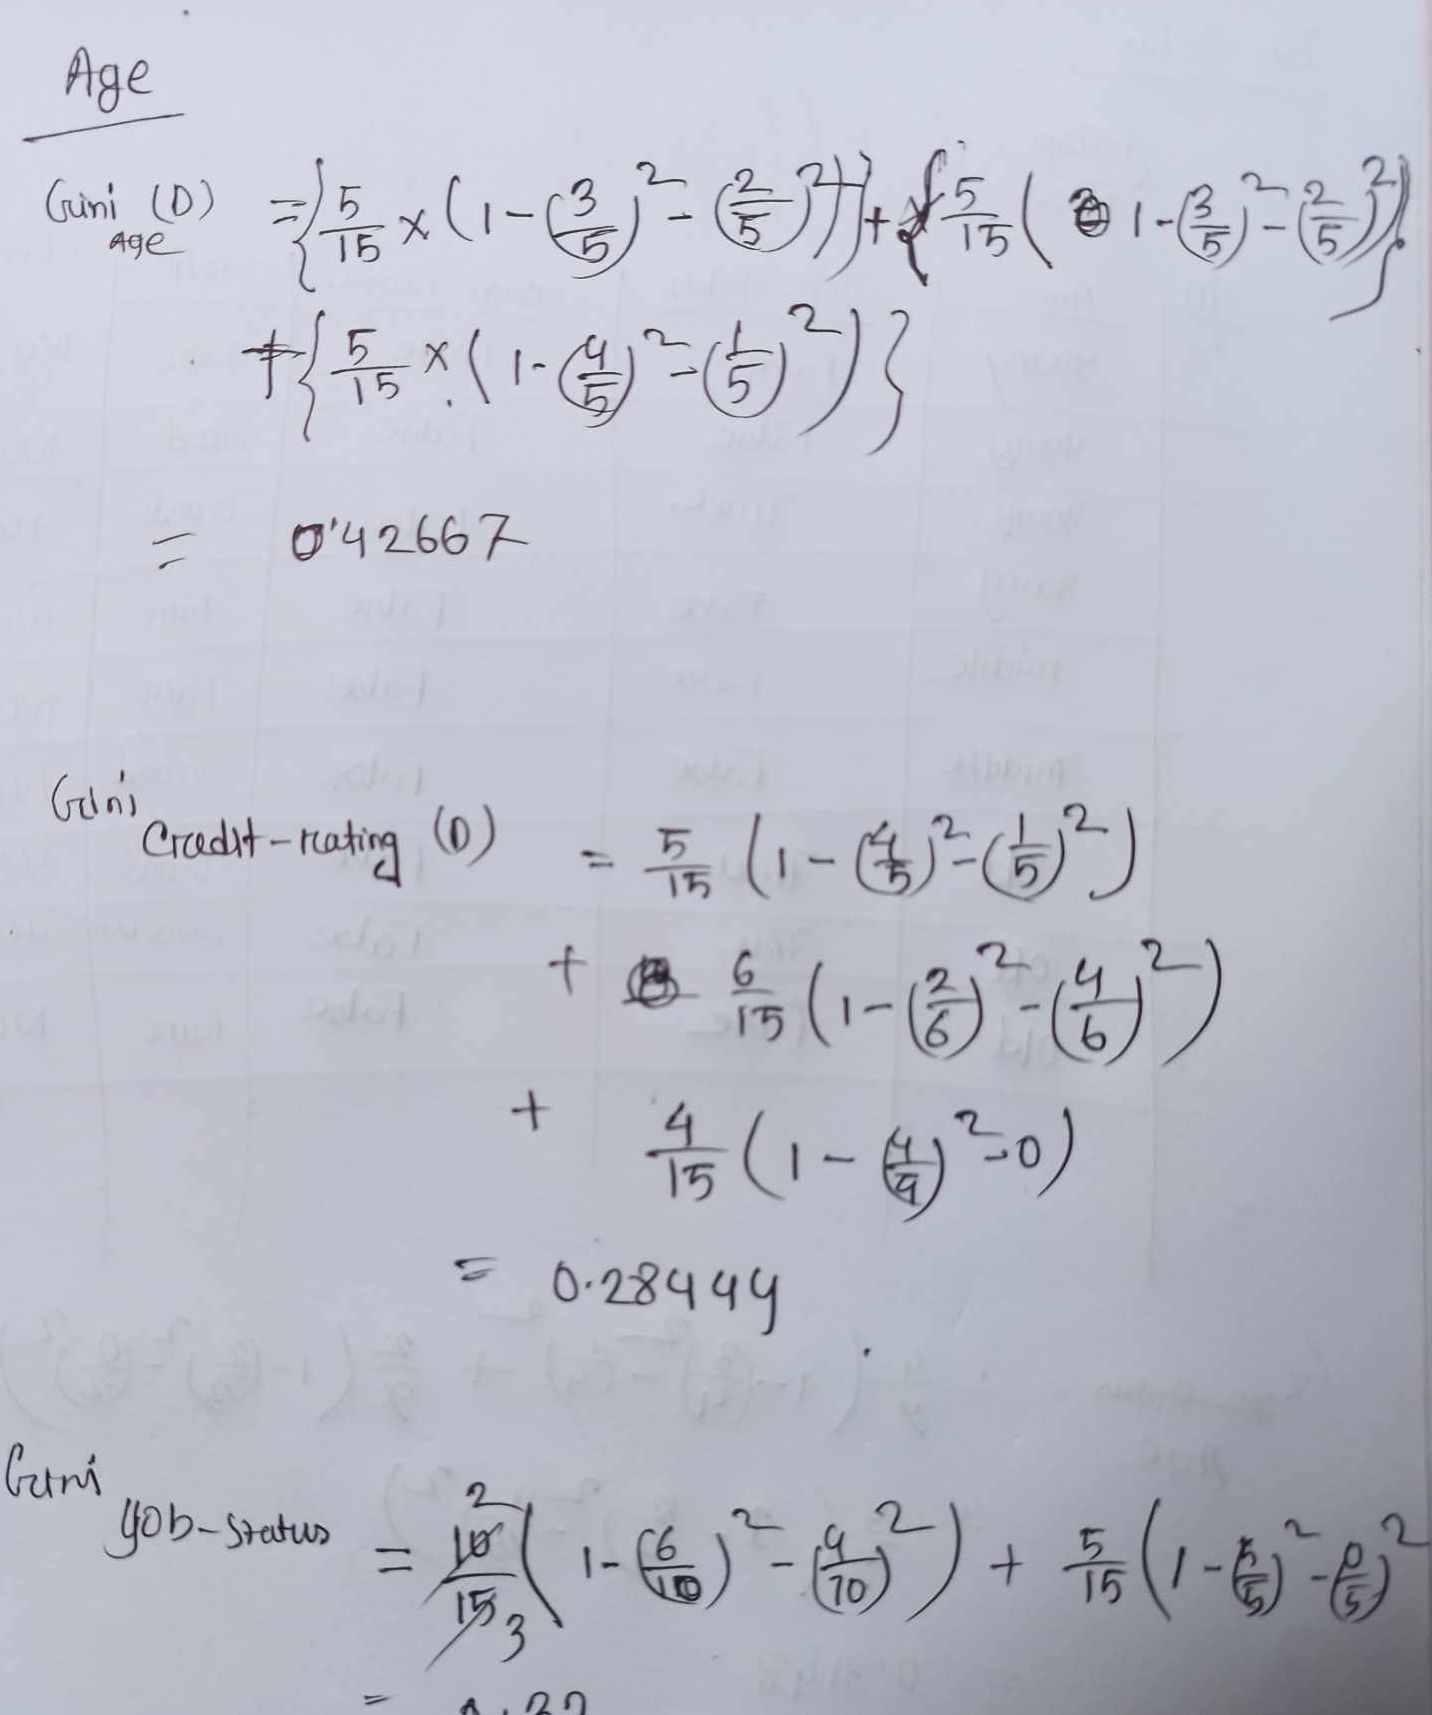 Age
Gini (D) Age = {5/15 × (1-(3/5)² - (2/5)²)} + {5/15 (1-(3/5)² - (2/5)²)}
+ {5/15 × (1-(4/5)² - (1/5)²)}
= 0.42667
Gini Credit-rating (D) = 5/15 (1-(4/5)² - (1/5)²)
+ 6/15 (1-(2/6)² - (4/6)²)
+ 4/15 (1-(4/4)² - 0)
= 0.28444
Gini Job-Status = 10/15 2/3 (1-(6/10)² - (4/10)²) + 5/15 (1-(5/5)² - (0/5)²
=